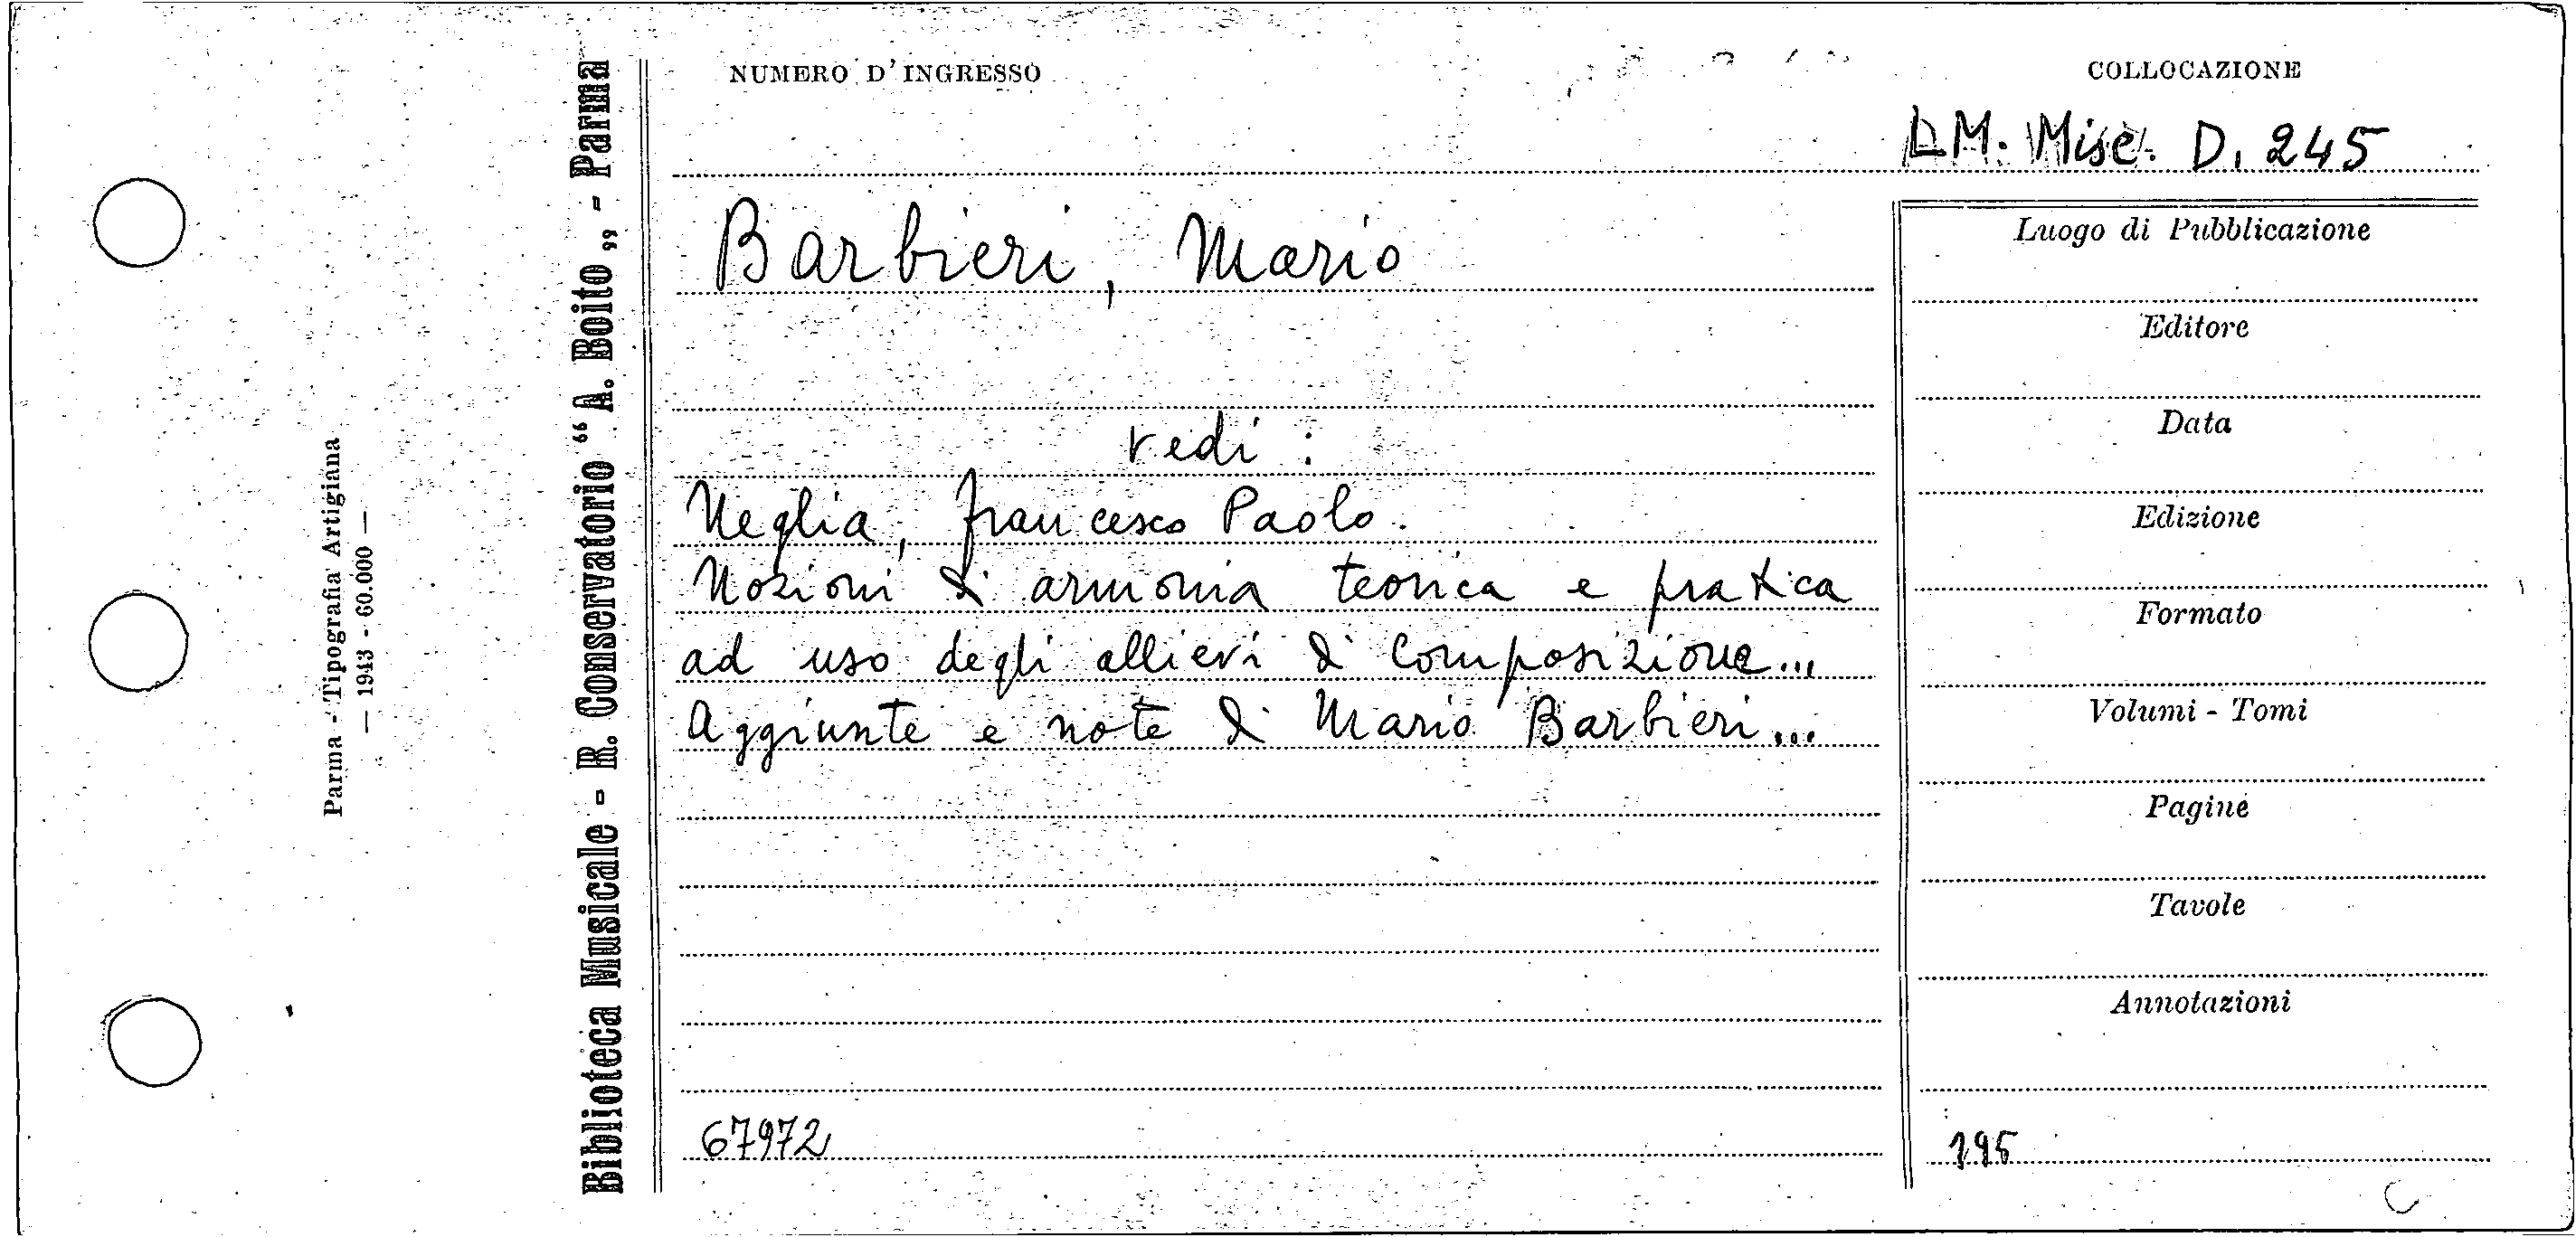 NUMERO D'INGRESSO
COLLOCAZIONE
LM. Misc. D. 245
Barbieri, Mario
vedi :
Neglia, Francesco Paolo.
Nozioni di armonia teorica e pratica
ad uso degli allievi di composizione...
Aggiunte e note di Mario Barbieri...
67972
Luogo di Pubblicazione
Editore
Data
Edizione
Formato
Volumi - Tomi
Pagine
Tavole
Annotazioni
195
C
Biblioteca Musicale - R. Conservatorio “ A. Boito „ - Parma
Parma - Tipografia Artigiana
— 1943 - 60.000 —